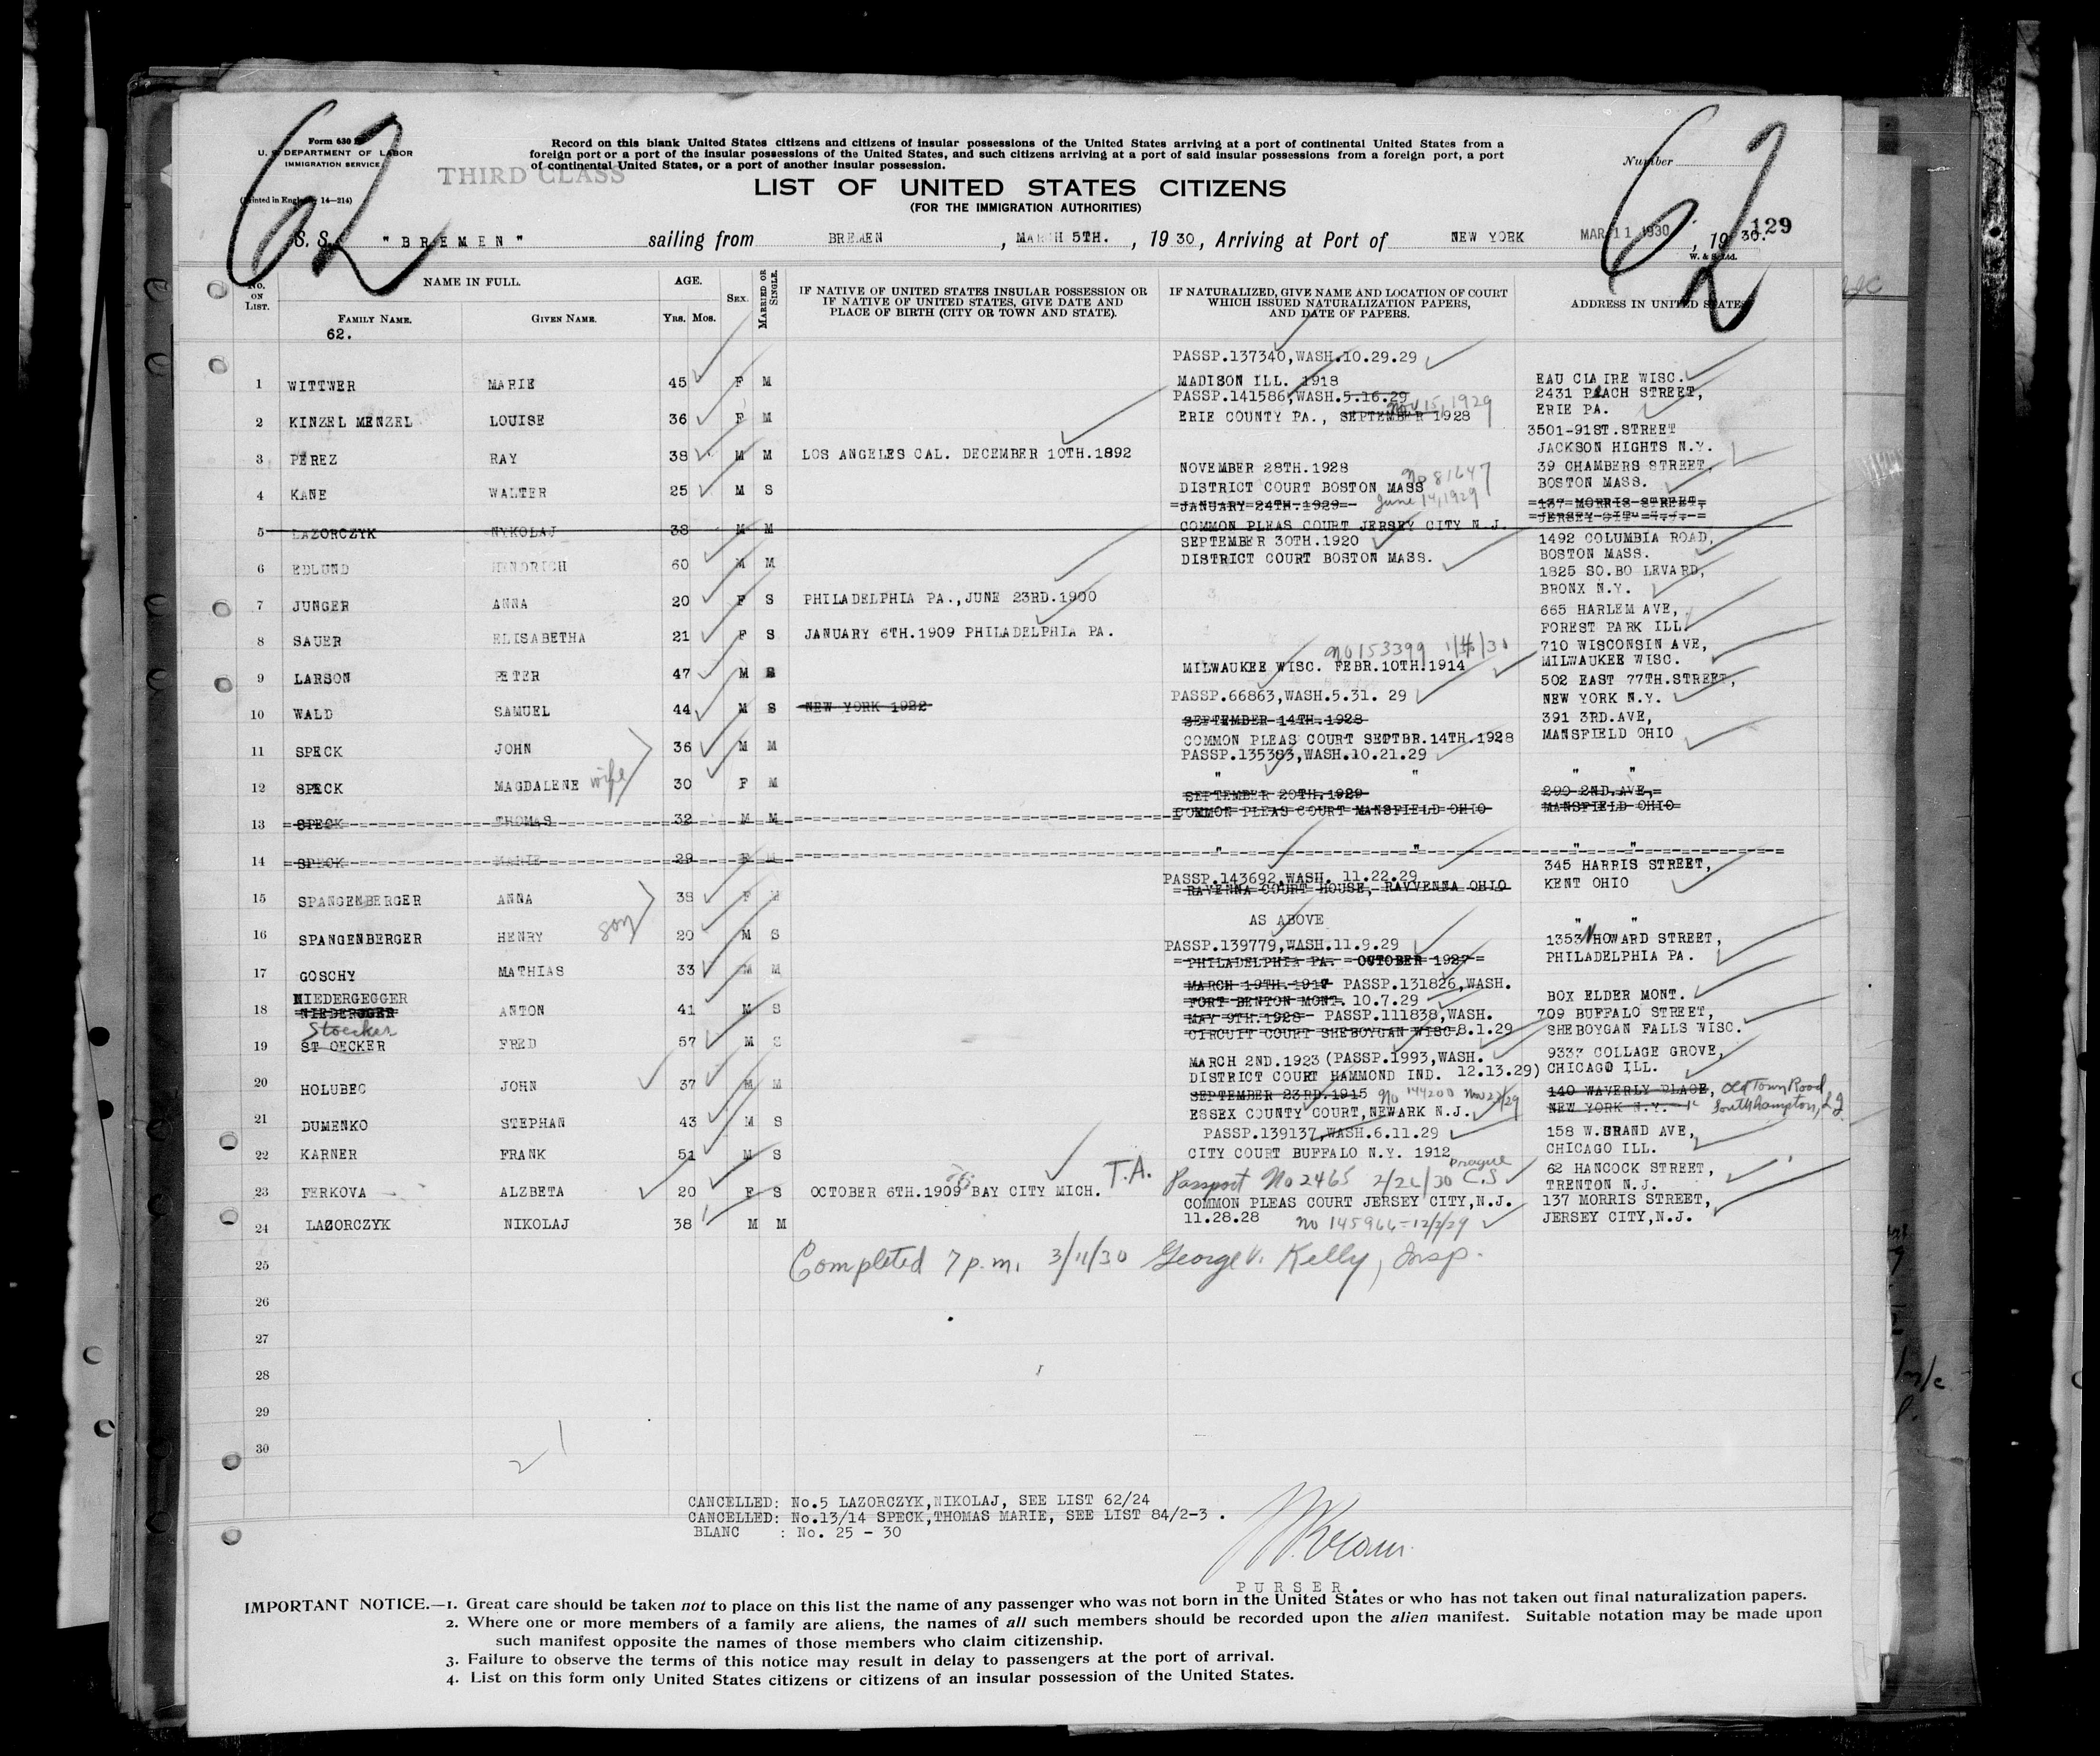 62
62
Form 630
U. S. DEPARTMENT OF LABOR
IMMIGRATION SERVICE
(Printed in England 14—214)
THIRD CLASS
Record on this blank United States citizens and citizens of insular possessions of the United States arriving at a port of continental United States from a
foreign port or a port of the insular possessions of the United States, and such citizens arriving at a port of said insular possessions from a foreign port, a port
of continental United States, or a port of another insular possession.
Number
LIST OF UNITED STATES CITIZENS
(FOR THE IMMIGRATION AUTHORITIES)
129
S. S. "BREMEN" sailing from BREMEN, MARCH 5TH., 1930, Arriving at Port of NEW YORK MAR 11 1930, 1930.
W. & S. Ltd.
No. ON LIST. NAME IN FULL. FAMILY NAME. GIVEN NAME. AGE. Yrs. Mos. SEX. MARRIED OR SINGLE. IF NATIVE OF UNITED STATES INSULAR POSSESSION OR IF NATIVE OF UNITED STATES, GIVE DATE AND PLACE OF BIRTH (CITY OR TOWN AND STATE). IF NATURALIZED, GIVE NAME AND LOCATION OF COURT WHICH ISSUED NATURALIZATION PAPERS, AND DATE OF PAPERS. ADDRESS IN UNITED STATES
62.
PASSP.137340,WASH.10.29.29
1 WITTWER MARIE 45 F M MADISON ILL. 1918 EAU CLAIRE WISC.
PASSP.141586,WASH.5.16.29 Nov 15, 1929 2431 PEACH STREET,
2 KINZEL MENZEL LOUISE 36 F M ERIE COUNTY PA., SEPTEMBER 1928 ERIE PA.
3501-91ST.STREET
3 PEREZ RAY 38 M M LOS ANGELES CAL. DECEMBER 10TH.1892 JACKSON HIGHTS N.Y.
NOVEMBER 28TH.1928 39 CHAMBERS STREET,
4 KANE WALTER 25 M S DISTRICT COURT BOSTON MASS No 81647 June 14, 1929 BOSTON MASS.
JANUARY 24TH.1929 137 MORRIS STREET,
5 LAZORCZYK NYKOLAJ 38 M M COMMON PLEAS COURT JERSEY CITY N.J. JERSEY CITY N.J.
SEPTEMBER 30TH.1920 1492 COLUMBIA ROAD,
6 EDLUND HENDRICH 60 M M DISTRICT COURT BOSTON MASS. BOSTON MASS.
1825 SO.BO LEVARD,
7 JUNGER ANNA 20 F S PHILADELPHIA PA.,JUNE 23RD.1900 BRONX N.Y.
665 HARLEM AVE,
8 SAUER ELISABETHA 21 F S JANUARY 6TH.1909 PHILADELPHIA PA. FOREST PARK ILL.
No 153399 710 WISCONSIN AVE,
9 LARSON PETER 47 M S MILWAUKEE WISC. FEBR.10TH.1914 MILWAUKEE WISC.
PASSP.66863,WASH.5.31. 29 502 EAST 77TH.STREET,
10 WALD SAMUEL 44 M S NEW YORK 1922 NEW YORK N.Y.
SEPTEMBER 14TH.1928 391 3RD.AVE,
11 SPECK JOHN 36 M M COMMON PLEAS COURT SEPTBR.14TH.1928 MANSFIELD OHIO
PASSP.135383,WASH.10.21.29
12 SPECK MAGDALENE wife 30 F M " " " "
SEPTEMBER 20TH.1929 290 2ND.AVE,
13 SPECK THOMAS 32 M M COMMON PLEAS COURT MANSFIELD OHIO MANSFIELD OHIO
14 SPECK MARIE 29 F M " " " "
PASSP.143692,WASH. 11.22.29 345 HARRIS STREET,
15 SPANGENBERGER ANNA 38 F M RAVENNA COURT HOUSE, RAVVENNA OHIO KENT OHIO
16 SPANGENBERGER HENRY son 20 M S AS ABOVE " "
PASSP.139779,WASH.11.9.29 1353 N HOWARD STREET,
17 GOSCHY MATHIAS 33 M M PHILADELPHIA PA. OCTOBER 1927 PHILADELPHIA PA.
NIEDERGEGGER MARCH 19TH.1917 PASSP.131826,WASH.
18 NIEDERGGER ANTON 41 M S FORT BENTON MONT. 10.7.29 BOX ELDER MONT.
Stoecker MAY 9TH.1928 PASSP.111838,WASH. 709 BUFFALO STREET,
19 ST OECKER FRED 57 M S CIRCUIT COURT SHEBOYGAN WISC.8.1.29 SHEBOYGAN FALLS WISC.
MARCH 2ND.1923 (PASSP.1993,WASH. 9337 COLLAGE GROVE,
20 HOLUBEC JOHN 37 M M DISTRICT COURT HAMMOND IND. 12.13.29) CHICAGO ILL.
SEPTEMBER 23RD.1915 No 144200 Nov 27/29 140 WAVERLY PLACE, Old Town Road
21 DUMENKO STEPHAN 43 M S ESSEX COUNTY COURT,NEWARK N.J. NEW YORK N.Y. Southhampton, L.I.
PASSP.139137,WASH.6.11.29 158 W.GRAND AVE,
22 KARNER FRANK 51 M S CITY COURT BUFFALO N.Y. 1912 CHICAGO ILL.
T.A. Passport No 2465 2/26/30 Prague C.S 62 HANCOCK STREET,
23 FERKOVA ALZBETA 20 F S OCTOBER 6TH.1909 BAY CITY MICH. TRENTON N.J.
COMMON PLEAS COURT JERSEY CITY,N.J. 137 MORRIS STREET,
24 LAZORCZYK NIKOLAJ 38 M M 11.28.28 No 145966-12/2/29 JERSEY CITY,N.J.
25 Completed 7 p.m. 3/11/30 George V. Kelly, Insp.
26
27
28
29
30
CANCELLED: No.5 LAZORCZYK,NIKOLAJ, SEE LIST 62/24
CANCELLED: No.13/14 SPECK,THOMAS MARIE, SEE LIST 84/2-3 .
BLANC : No. 25 - 30
PURSER.
IMPORTANT NOTICE.—1. Great care should be taken not to place on this list the name of any passenger who was not born in the United States or who has not taken out final naturalization papers.
2. Where one or more members of a family are aliens, the names of all such members should be recorded upon the alien manifest. Suitable notation may be made upon
such manifest opposite the names of those members who claim citizenship.
3. Failure to observe the terms of this notice may result in delay to passengers at the port of arrival.
4. List on this form only United States citizens or citizens of an insular possession of the United States.